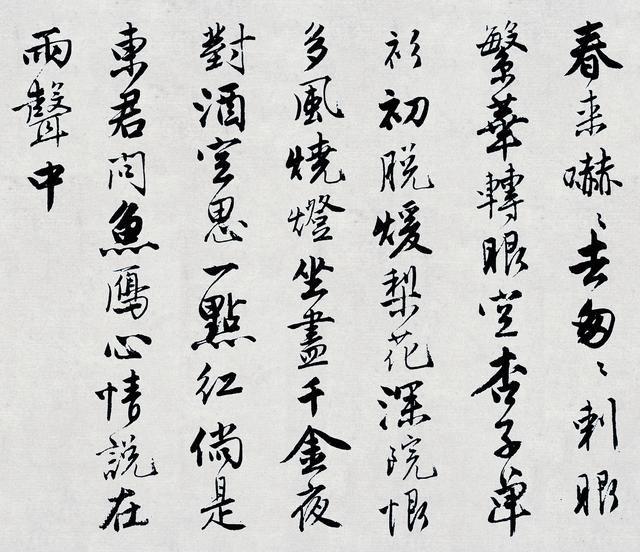 春来嚇〻去匆〻刺眼
繁華轉眼空杏子單
衫初脱煖梨花深院恨
多風燒燈坐盡千金夜
對酒空思一點紅倘是
東君問魚鴈心情説在
雨聲中